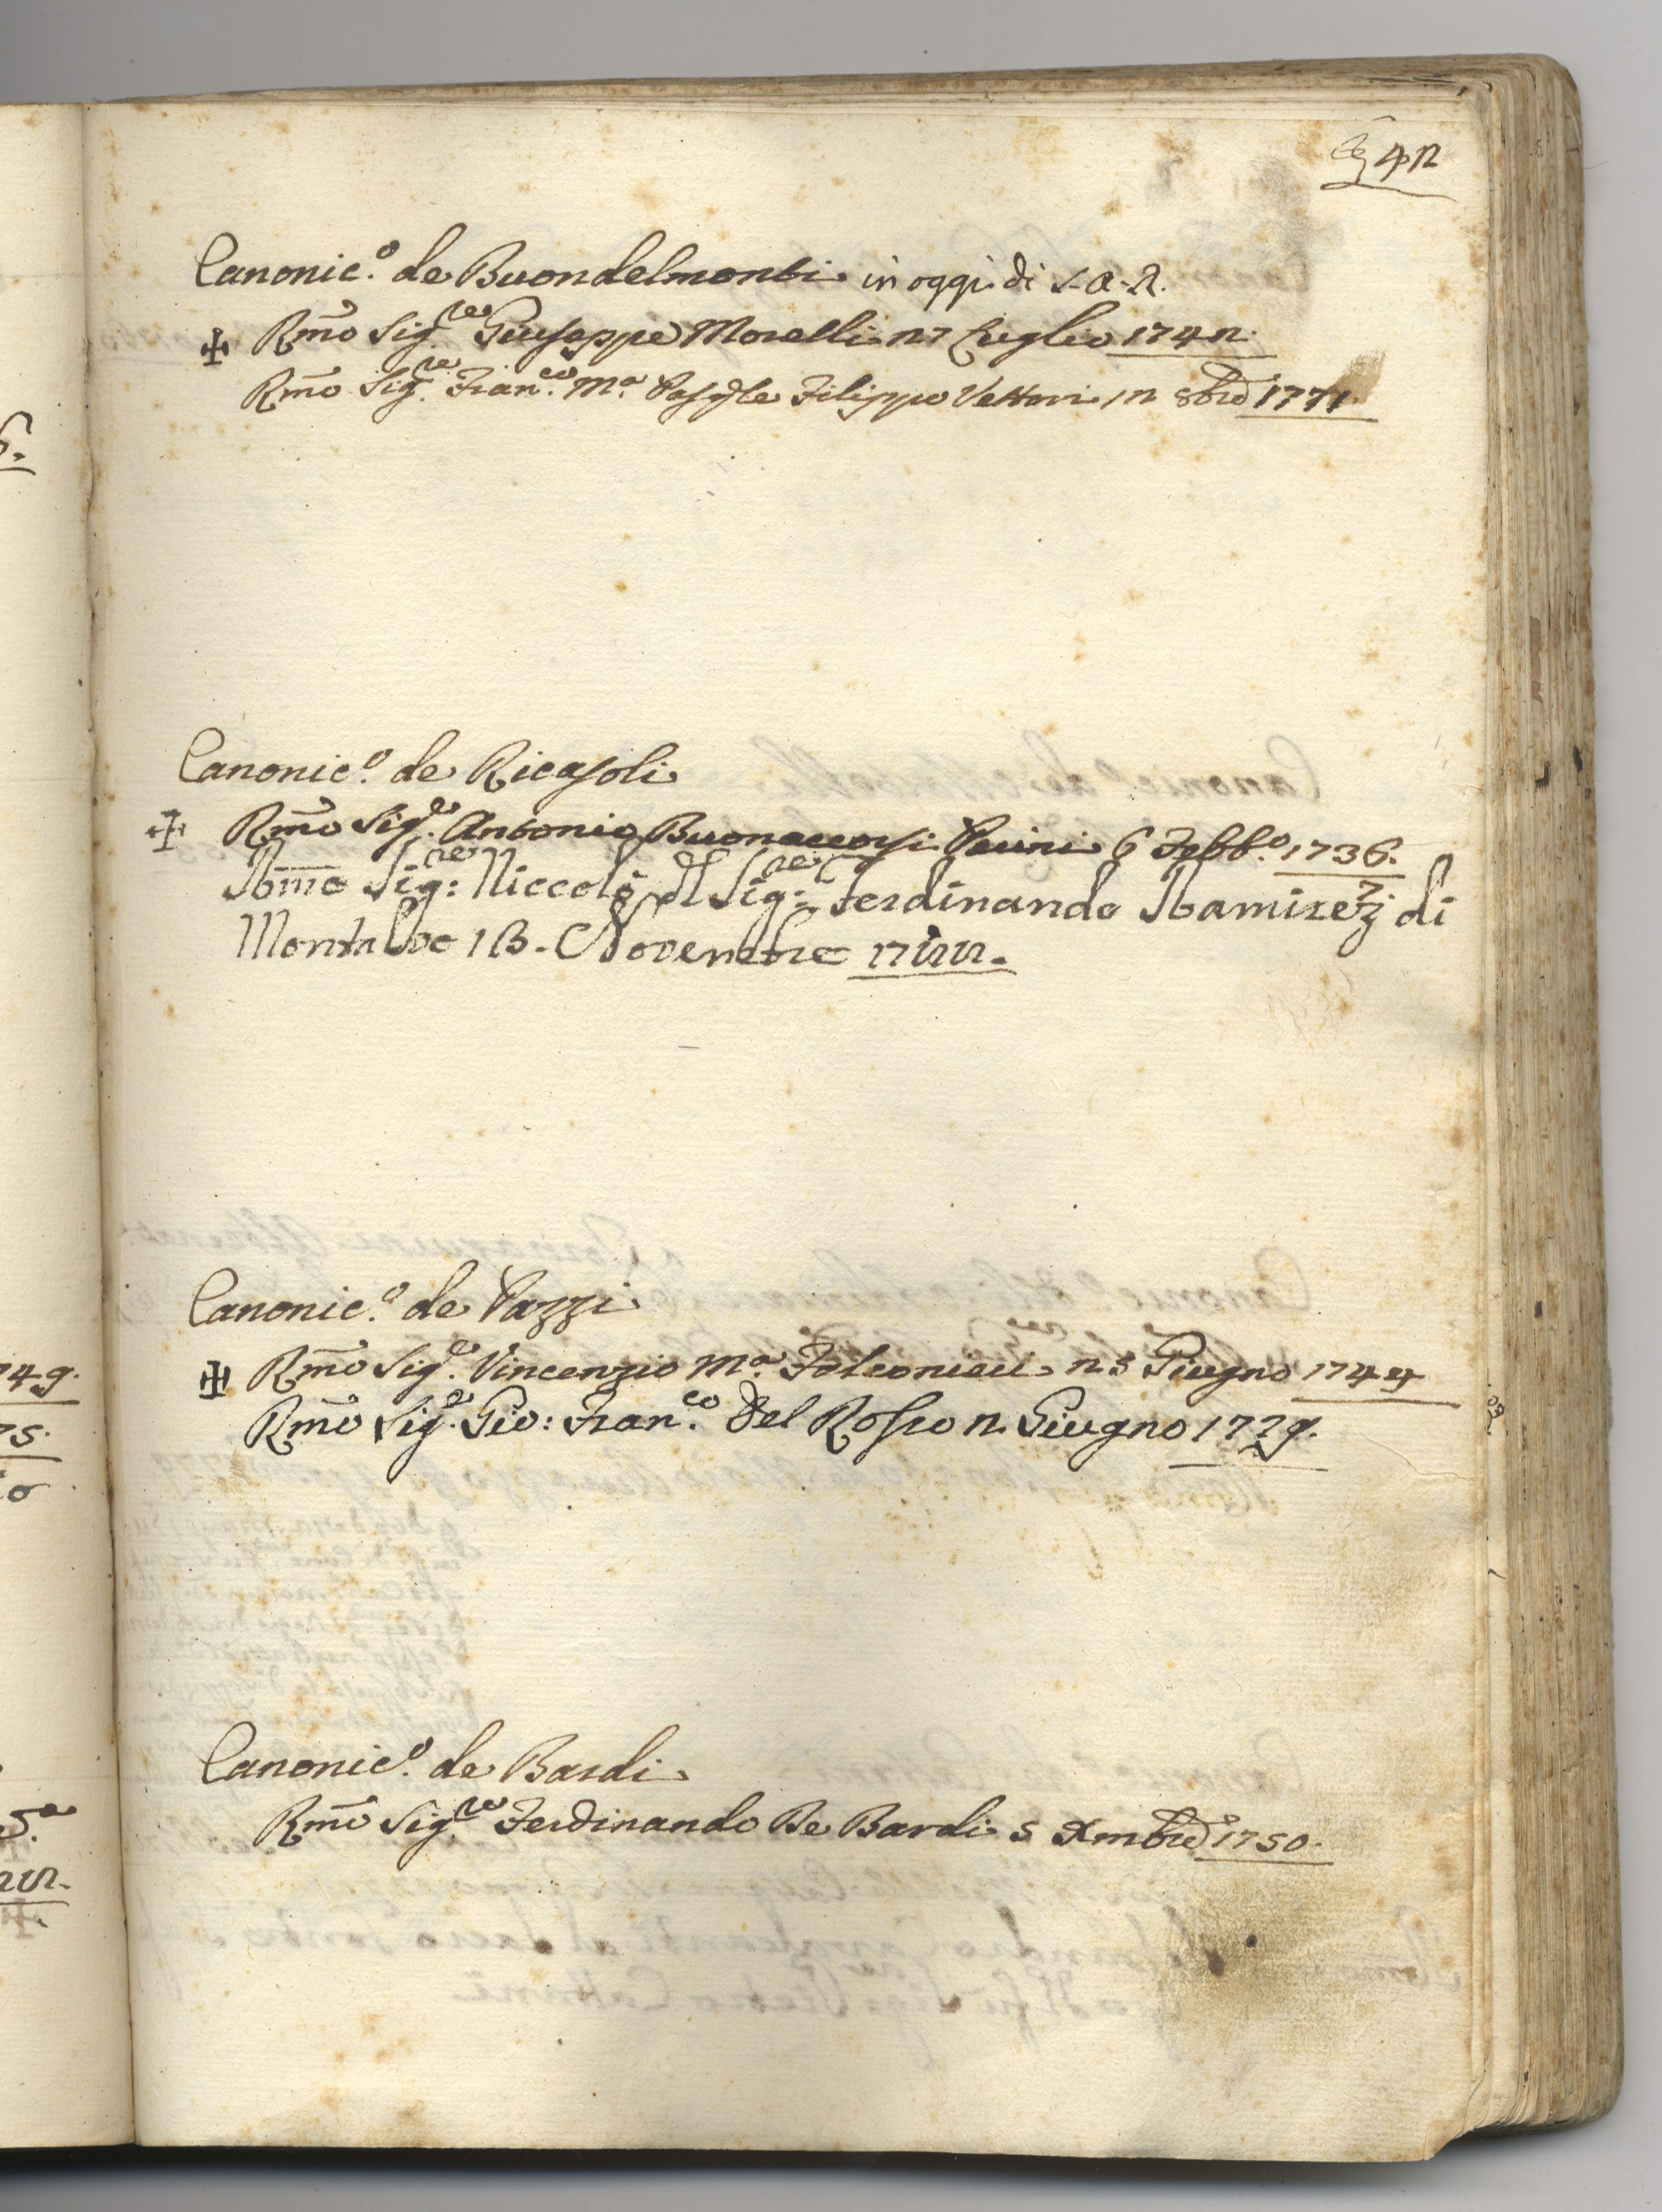 42
Canonic.º de Buondelmonti in oggi di S.A.R.
✠ Rmo Sig.re Giuseppe Morelli 27 Luglio 1742.
Rmo Sig.re Fran.co M.a Pasqle Filippo Vettori 12 8bre 1771.
Canonic.º de Ricasoli
✠ Rmo Sig.e Antonio Buonaccorsi Perini 6 Febb.º 1736.
Rmo Sig:re Niccolò del Sig:re Ferdinando Ramirez di
Montalvo 13. Novembre 1777.
Canonic.º de Pazzi
✠ Rmo Sig.e Vincenzio M.a Falconieri 25 Giugno 1744
Rmo Sig.e Gio: Fran.co Del Rosso 2 Giugno 1779.
Canonic.º de Bardi
Rmo Sig.re Ferdinando De Bardi 5 Xmbre 1750.
49.
75.